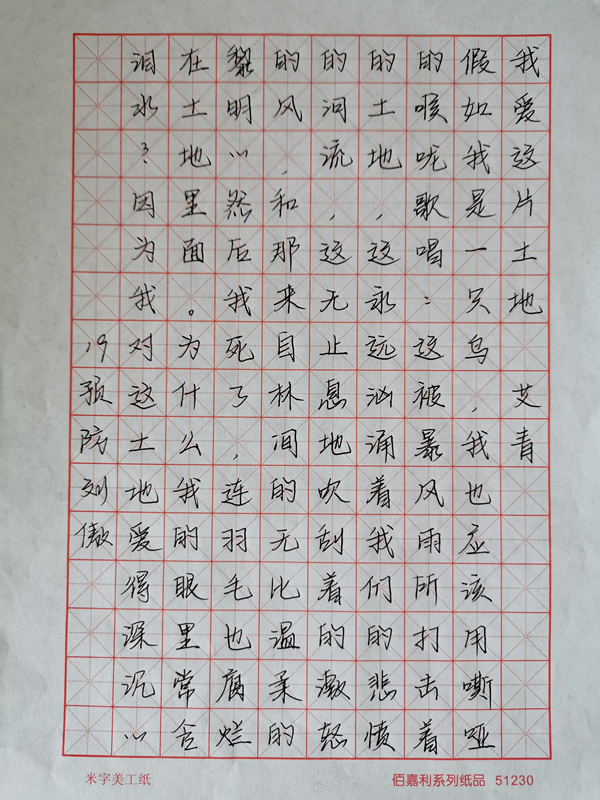 我爱这片土地 艾青
假如我是一只鸟,我也应该用嘶哑
的喉咙歌唱:这被暴风雨所打击着
的土地,这永远汹涌着我们的悲愤
的河流,这无止息地吹刮着的激怒
的风,和那来自林间的无比温柔的
黎明……然后我死了,连羽毛也腐烂
在土地里面。为什么我的眼里常含
泪水?因为我对这土地爱得深沉……
19预防刘傲
米字美工纸 佰嘉利系列纸品 51230